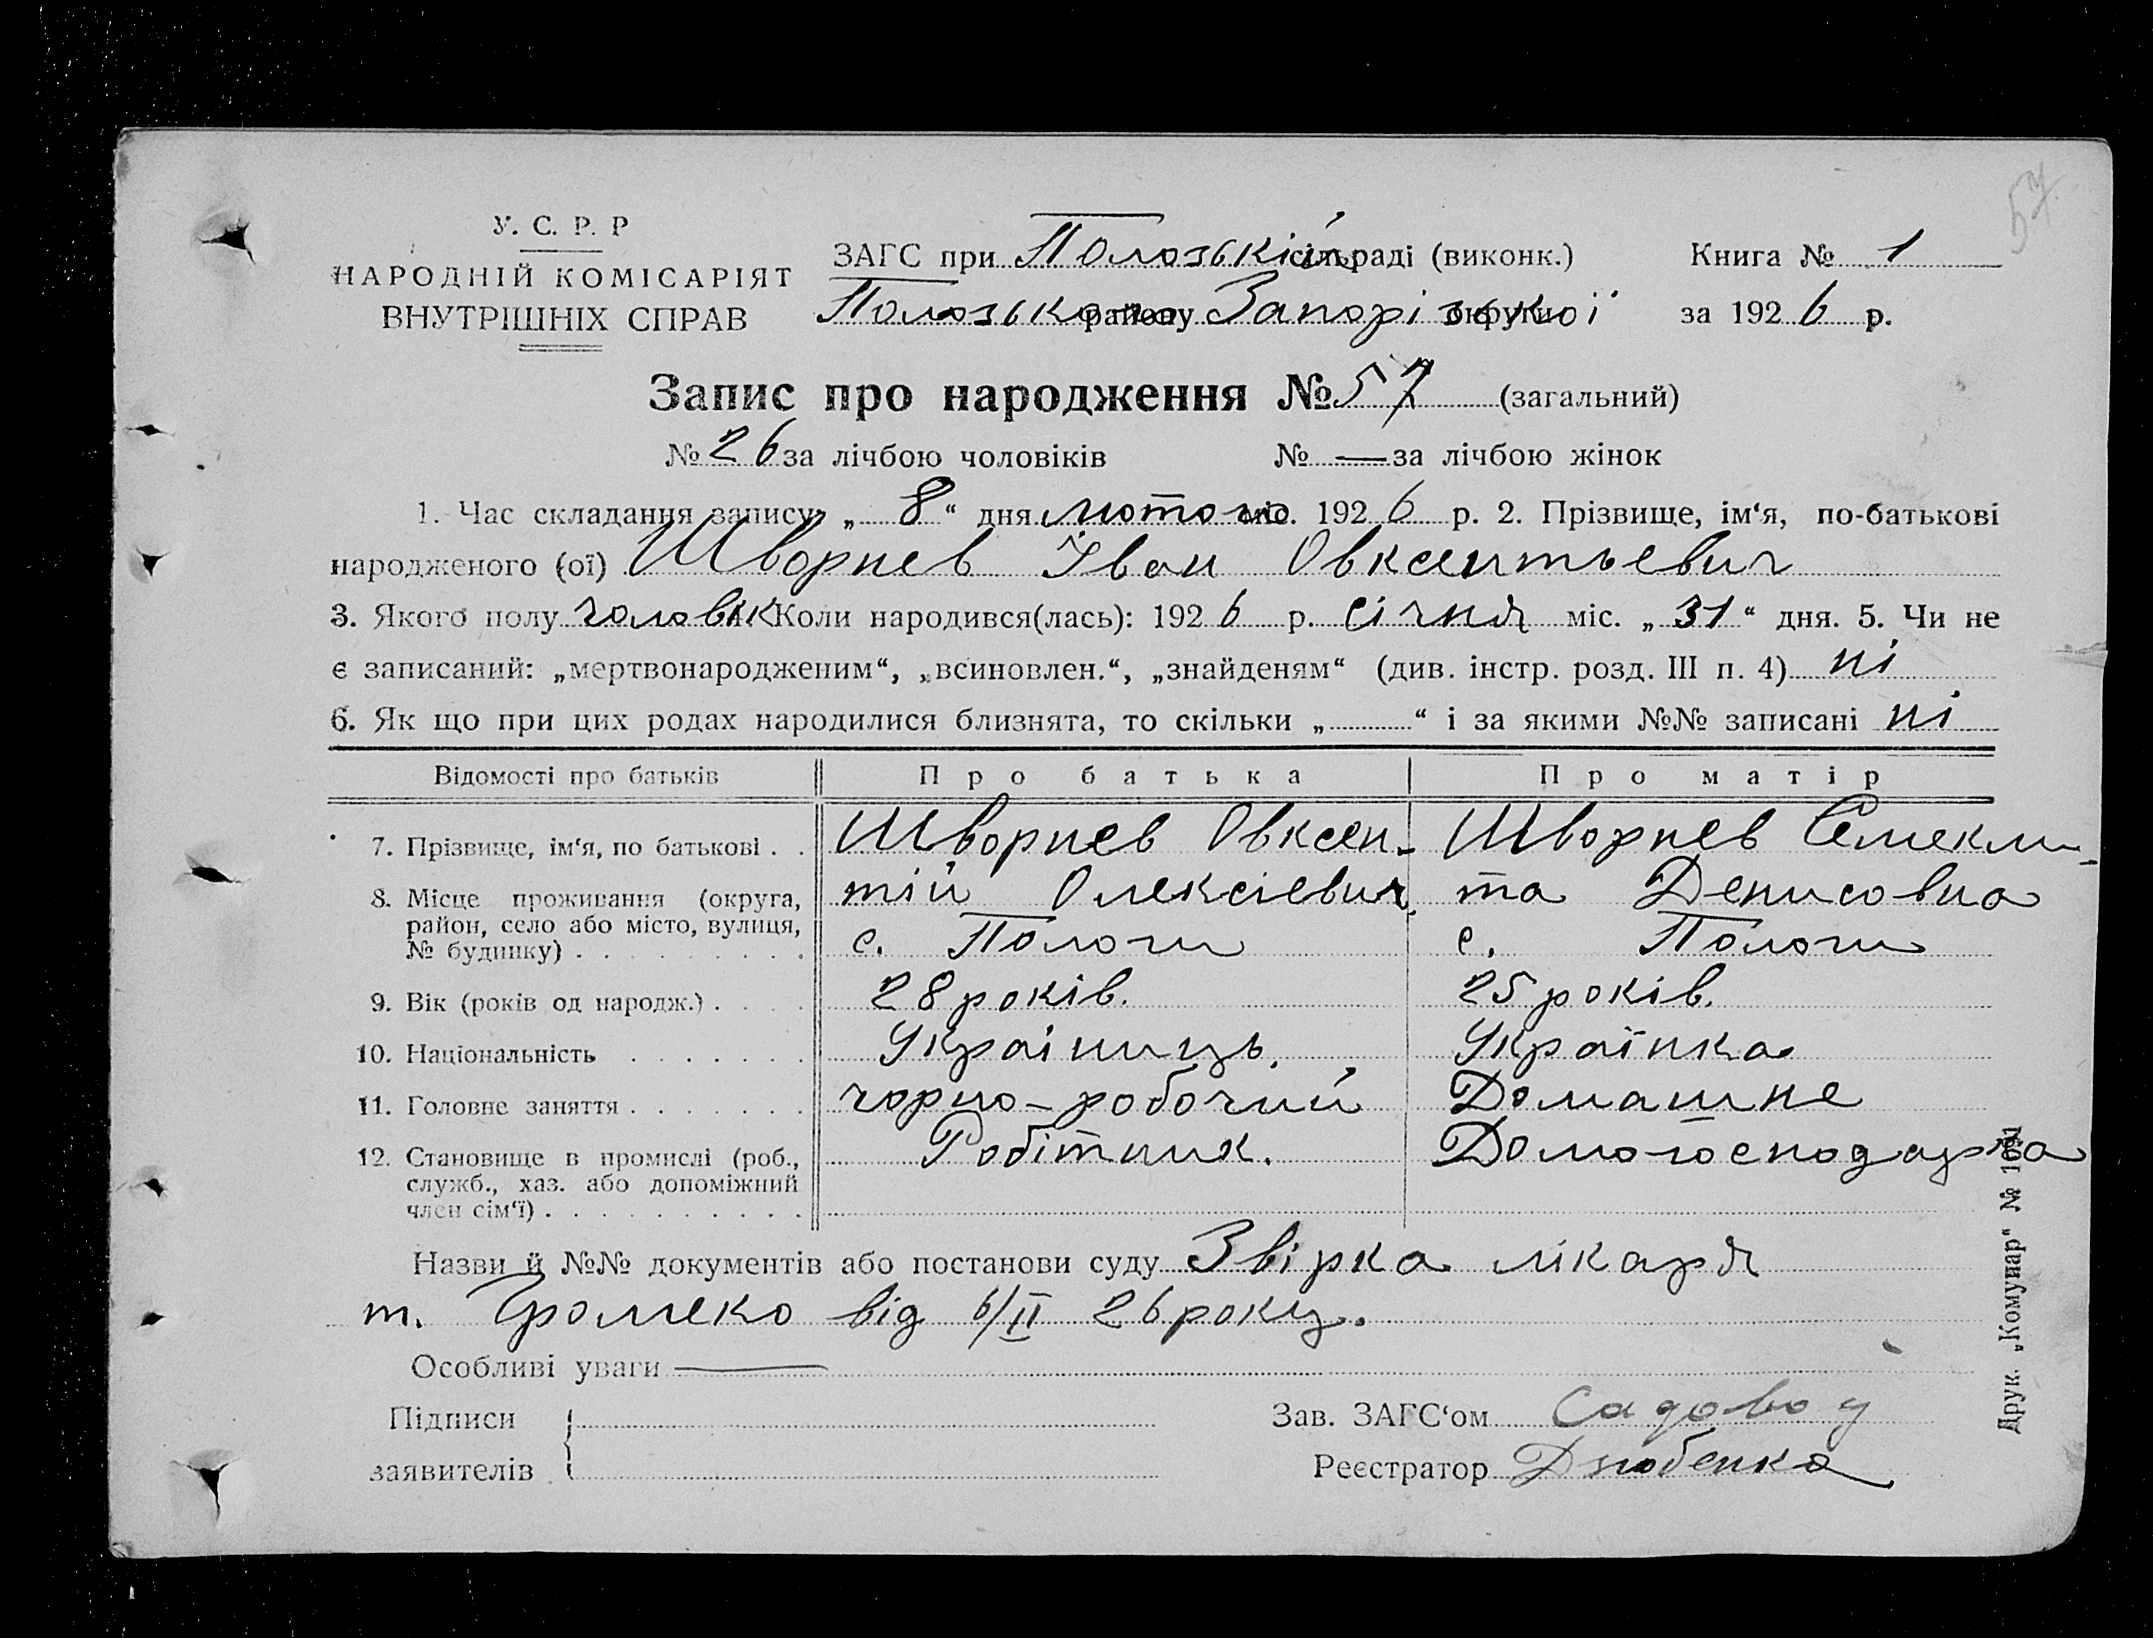 57
У. С. Р. Р
НАРОДНІЙ КОМІСАРІЯТ
ВНУТРІШНІХ СПРАВ
ЗАГС при Полозькій сільраді (виконк.) Книга № 1
Полозького району Запорізької округи за 1926 р.
Запис про народження № 57 (загальний)
№ 26 за лічбою чоловіків № — за лічбою жінок
1. Час складання запису „8“ дня лютого міс. 1926 р. 2. Прізвище, ім‘я, по-батькові
народженого (ої) Шворнев Іван Овксентьевич
3. Якого полу чоловік Коли народився(лась): 1926 р. січня міс. „31“ дня. 5. Чи не
є записаний: „мертвонародженим“, „всиновлен.“, „знайденям“ (див. інстр. розд. III п. 4) ні
6. Як що при цих родах народилися близнята, то скільки „ “ і за якими №№ записані ні
Відомості про батьків Про батька Про матір
7. Прізвище, ім‘я, по батькові . . Шворнев Овксен- Шворнев
8. Місце проживання (округа, тій Олексієвич та Денисовна
район, село або місто, вулиця,
№ будинку) . . . . . . . . . с. Пологи с. Пологи
9. Вік (років од народж.) . . . . 28 років. 25 років.
10. Національність . . . . . . . Україниць. Українка
11. Головне заняття . . . . . . . чорно-робочий Домашне
12. Становище в промислі (роб., Робітник. Домогосподарка
служб., хаз. або допоміжний
член сім‘ї) . . . . . . . . . .
Назви й №№ документів або постанови суду Звірка лікаря
т. Громеко від 6/II 26 року.
Особливі уваги —
Підписи
заявителів
Зав. ЗАГС‘ом Садовод
Реєстратор Дзюбенко
Друк. „Комунар“ №